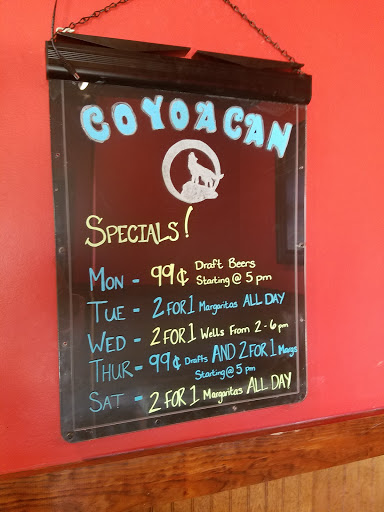 COYOACAN
SPECIALS!
MON - 99¢ Draft Beers
Starting @ 5 pm
TUE - 2 FOR 1 Margaritas ALL DAY
WED - 2 FOR 1 Wells From 2 - 6 pm
THUR - 99¢ Drafts AND 2 FOR 1 Margs
Starting @ 5 pm
SAT - 2 FOR 1 Margaritas ALL DAY